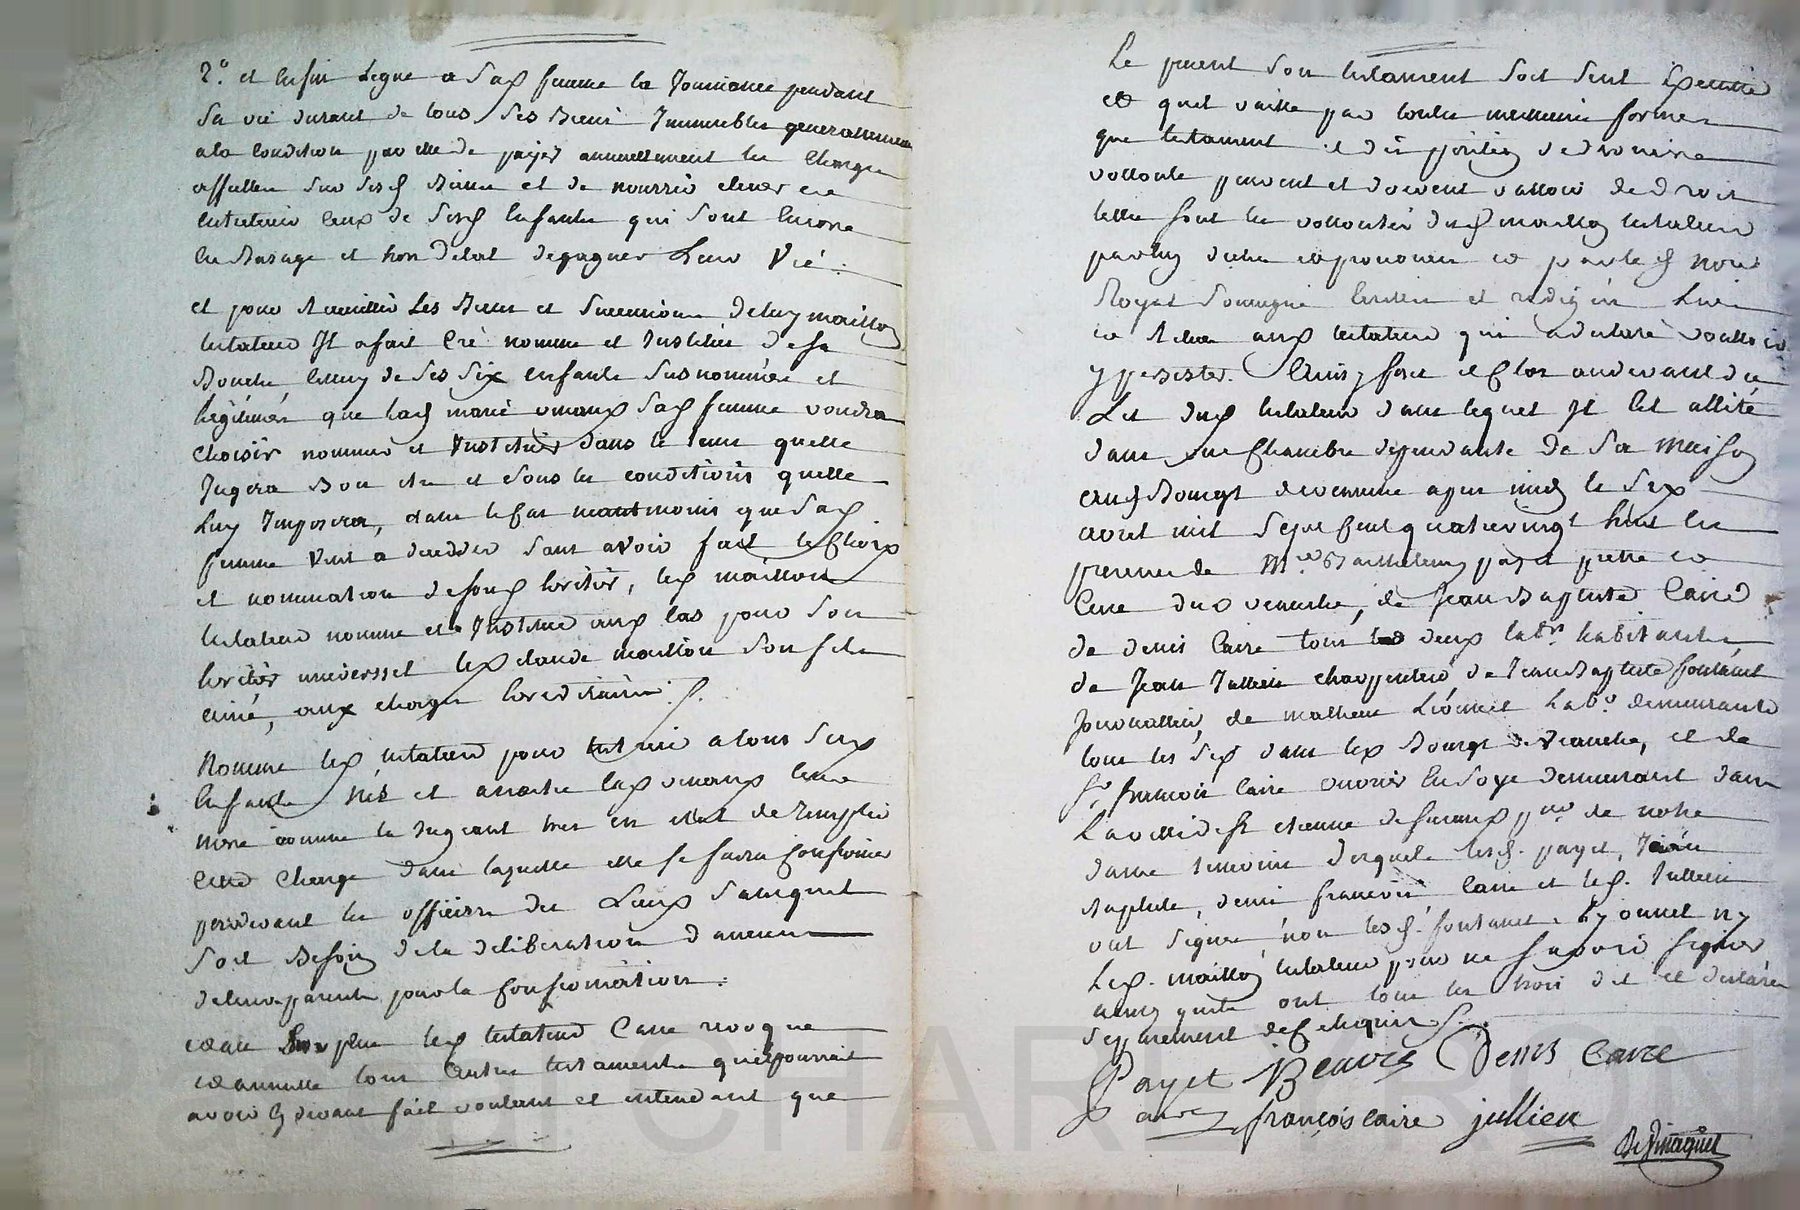 2.° et Enfin Legue a Sad femme la Jouissance pendant
Sa vie durant de tous Ses Biens Immeubles generallement
a la Condition par elle de payer annuellement les Charges
affectées sur sesd Biens et de nourrir elever et
Entretenir Ceux de Sesd Enfants qui Sont Encore
En Bas age et hors d'etat de gagner Leur Vie :
et pour recueillir Les Biens et Successions de luy maillon
testateur Il a fait Cré nommé et Institué de sa
Bouche Celluy de Ses Six enfants Susnommés et
Legitimes que lad marie Sad femme voudra
Choisir nommer et Instituer dans le tems quelle
Jugera Bon etre et Sous les conditions quelle
Luy Imposera, dans le Cas neantmoins que Sad
femme Vint a deceder Sans avoir fait le Choix
et nomination de Sond heritier, led maillon
testateur nomme et Institue aud Cas pour Son
heritier universsel led claude maillon Son fils
ainé, aux charges hereditaires
Nomme led testateur pour a tous Sesd
Enfants Nés et lad leur
mere comme la Jugeant tres en etat de remplir
Cette Charge dans laquelle elle se faira Confirmer
pardevant les officiers des Lieux Sans quil
Soit Besoin de la deliberation d'aucuns
de leurs parents pour la Confirmation :
et au Surplus led testateur Casse revoque
et annulle tous autres testaments quil pourrait
avoir Cy devant fait voulant et entendant que
Le present Son testament Soit Seul Executté
et quil vaille par toutes meilleures formes
que testament et disposition de derniere
vollonté peuvent et doivent valloir de droit
telles Sont les vollontés dud maillon testateur
par luy dictes et prononcées et par led Nore
Royal Soussigné Ecrites et redigées Lues
et relues aud testateur qui a declaré voulloir
y persister. Ainsy fait et Clos au devant du
Lit dud testateur dans lequel Il Est allité
dans une Chambre dependante de Sa Maison
aud Bourgt de venuche apres midy le Six
avril mil Sept Cent quatrevingt huit En
presence de Mre Barthelemy payet prettre et
Curé dud, de Jean Baptiste Caire
de denis Caire tous deux labrs habitants
de Jean Jullien charpentier de Jean Baptiste fontanet
Journallier, de mathieu Liónnet Labr demeurants
tous les Six dans led Bourgt de, et de
Sr francois Caire ouvrier En Soye demeurant dans
La ville de St etienne
dame temoins desquels lesd. payet, Jean
Baptiste, denis francois, Caire et led. Jullien
ont Signés non lesd. fontanet Lyonnet ny
Led. maillon testateur pour ne Savoir Signer
ainsy quils ont tous les trois dit et declarés
Separement de Ce Enquis
Payet Denis Caire
françois caire jullien